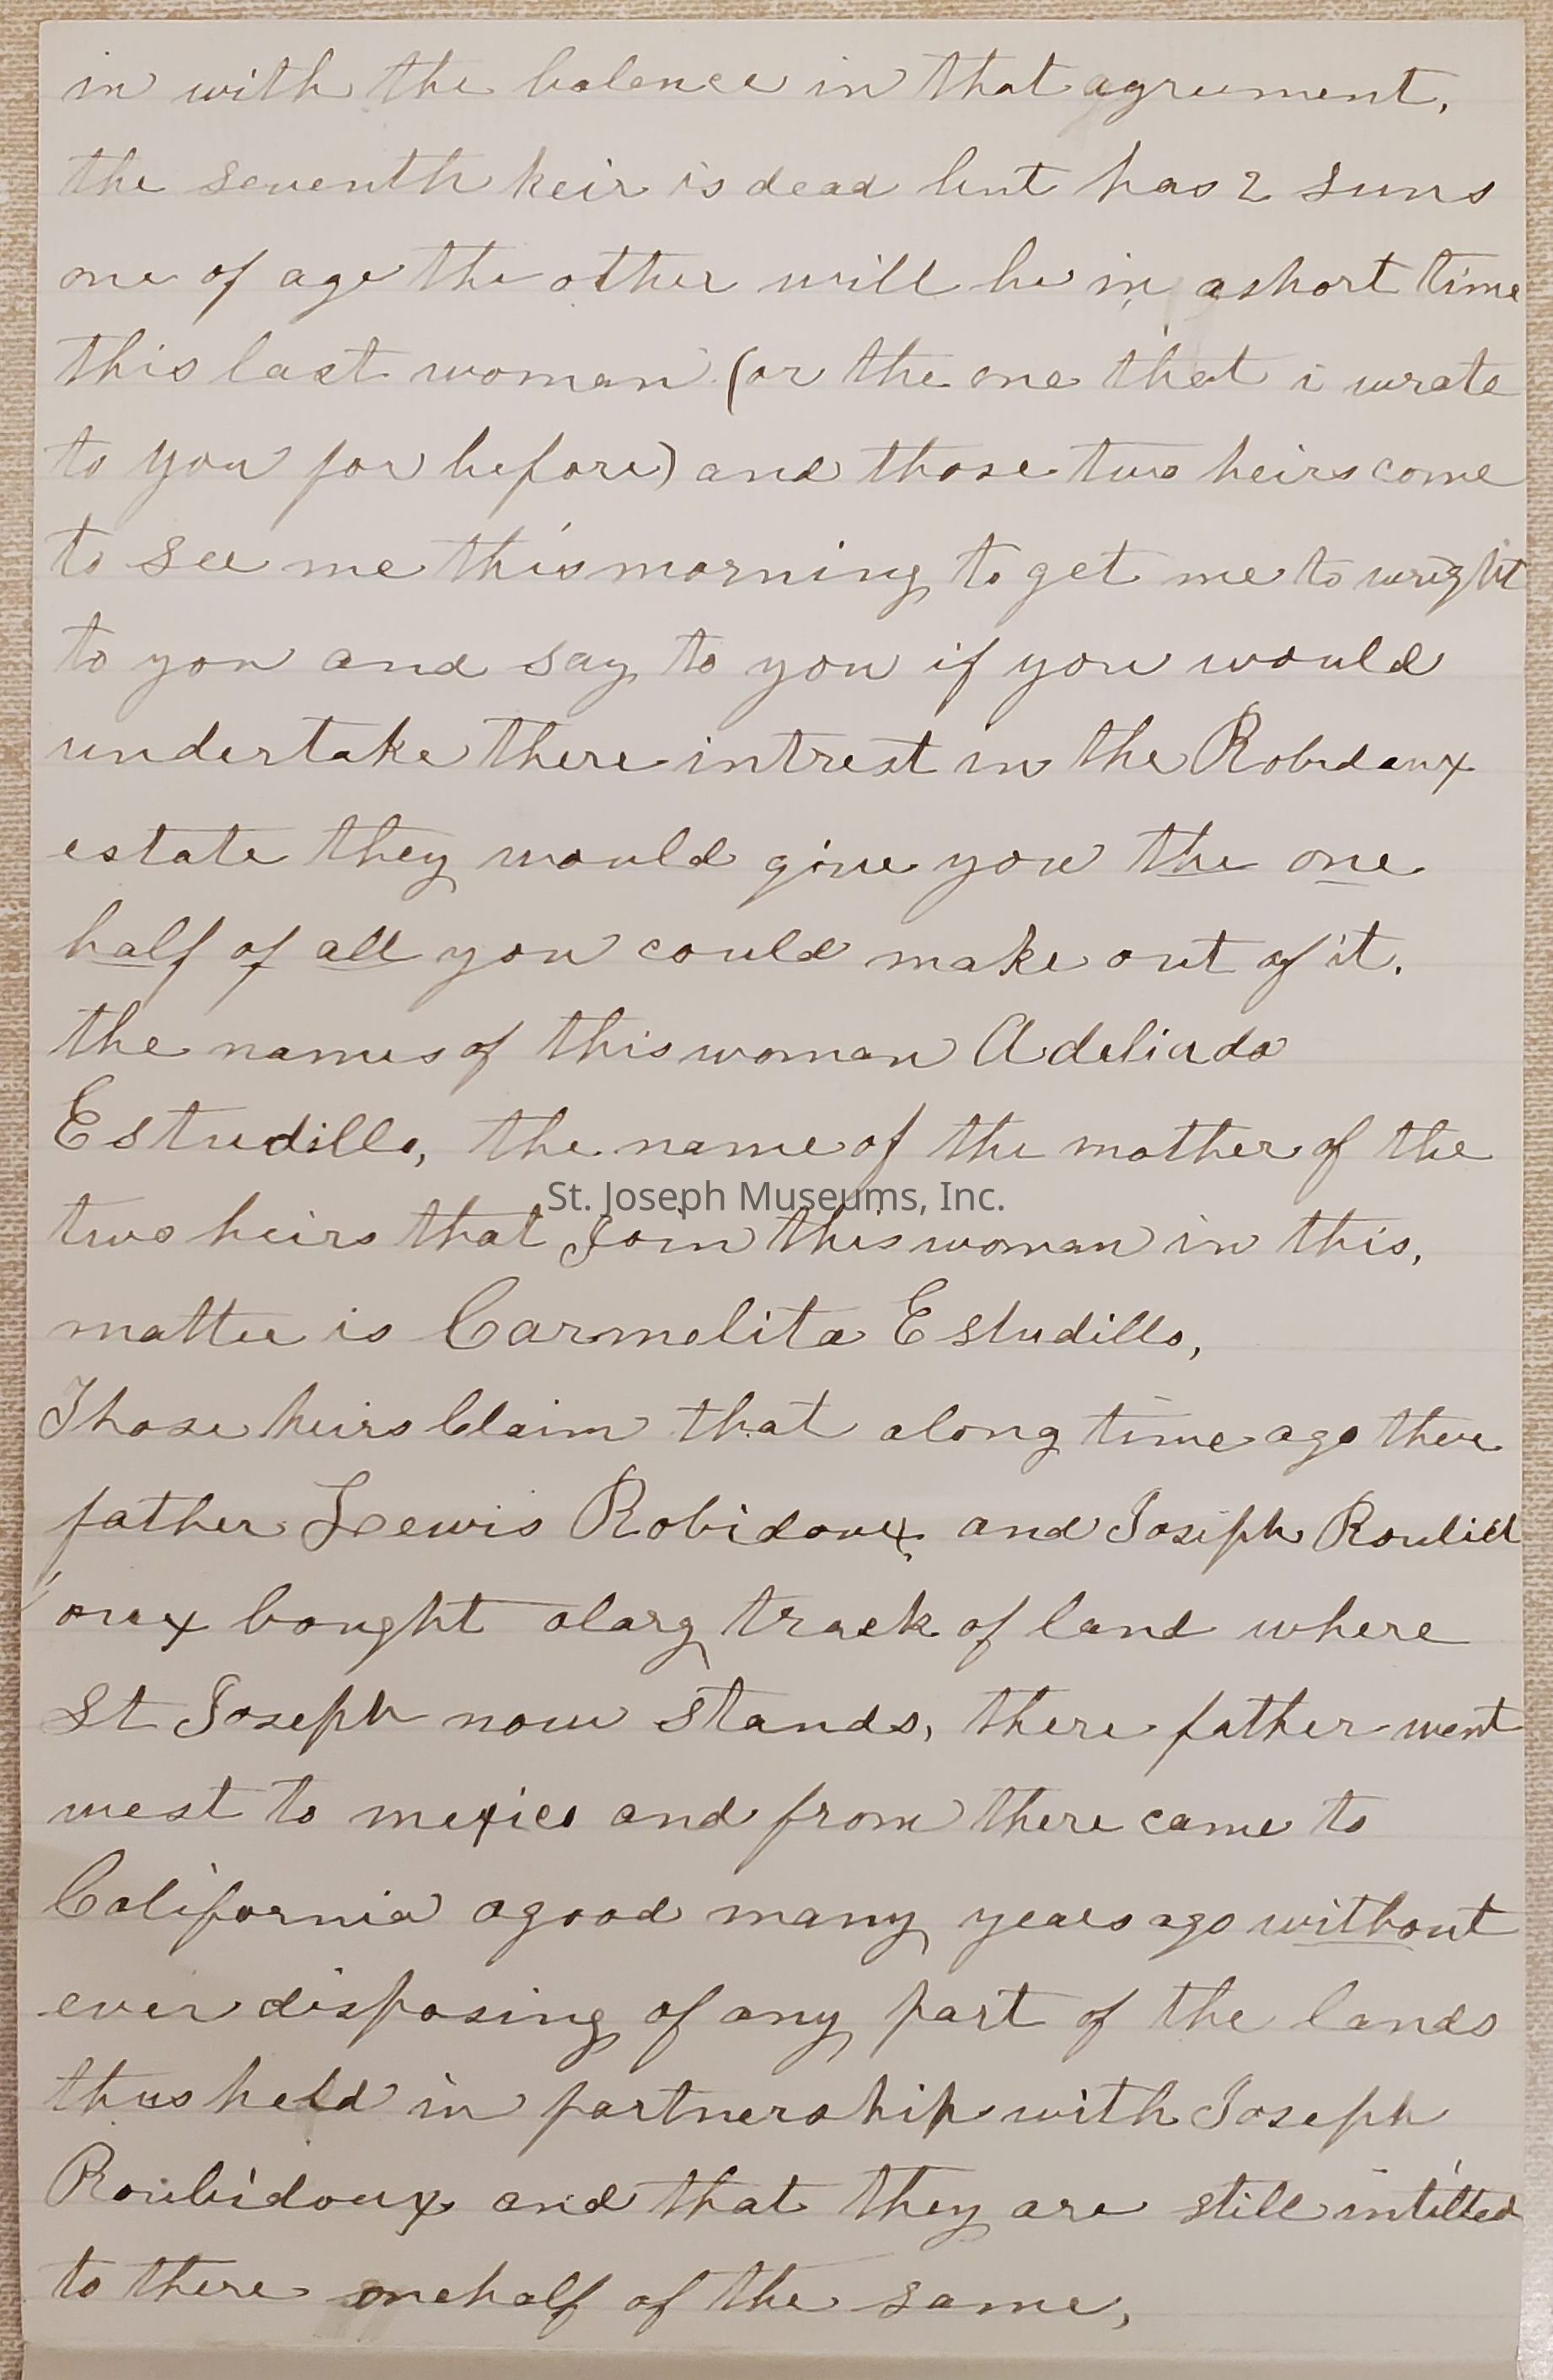 in with the balence in that agreement,
the seventh heir is dead but has 2 suns
one of age the other will be in ashort time
this last woman (or the one that i wrate
to you for before) and those two heirs come
to see me this morning to get me to wright
to you and say to you if you would
undertake there intrest in the Robidaux
estate they would give you the one
half of all you could make out of it.
the names of this woman Adeliada
Estudillo, the name of the mother of the
two heirs that Join this woman in this,
St. Joseph Museums, Inc.
matter is Carmelita Estudillo,
Those heirs Claim that along time ago there
father Lewis Robidoux and Joseph Roubid
oux bought alarg track of land where
St Joseph now stands, there father went
west to mexico and from there came to
California agood many years ago without
ever disposing of any part of the lands
thus held in partnership with Joseph
Roubidoux and that they are still intitted
to there onehalf of the same,